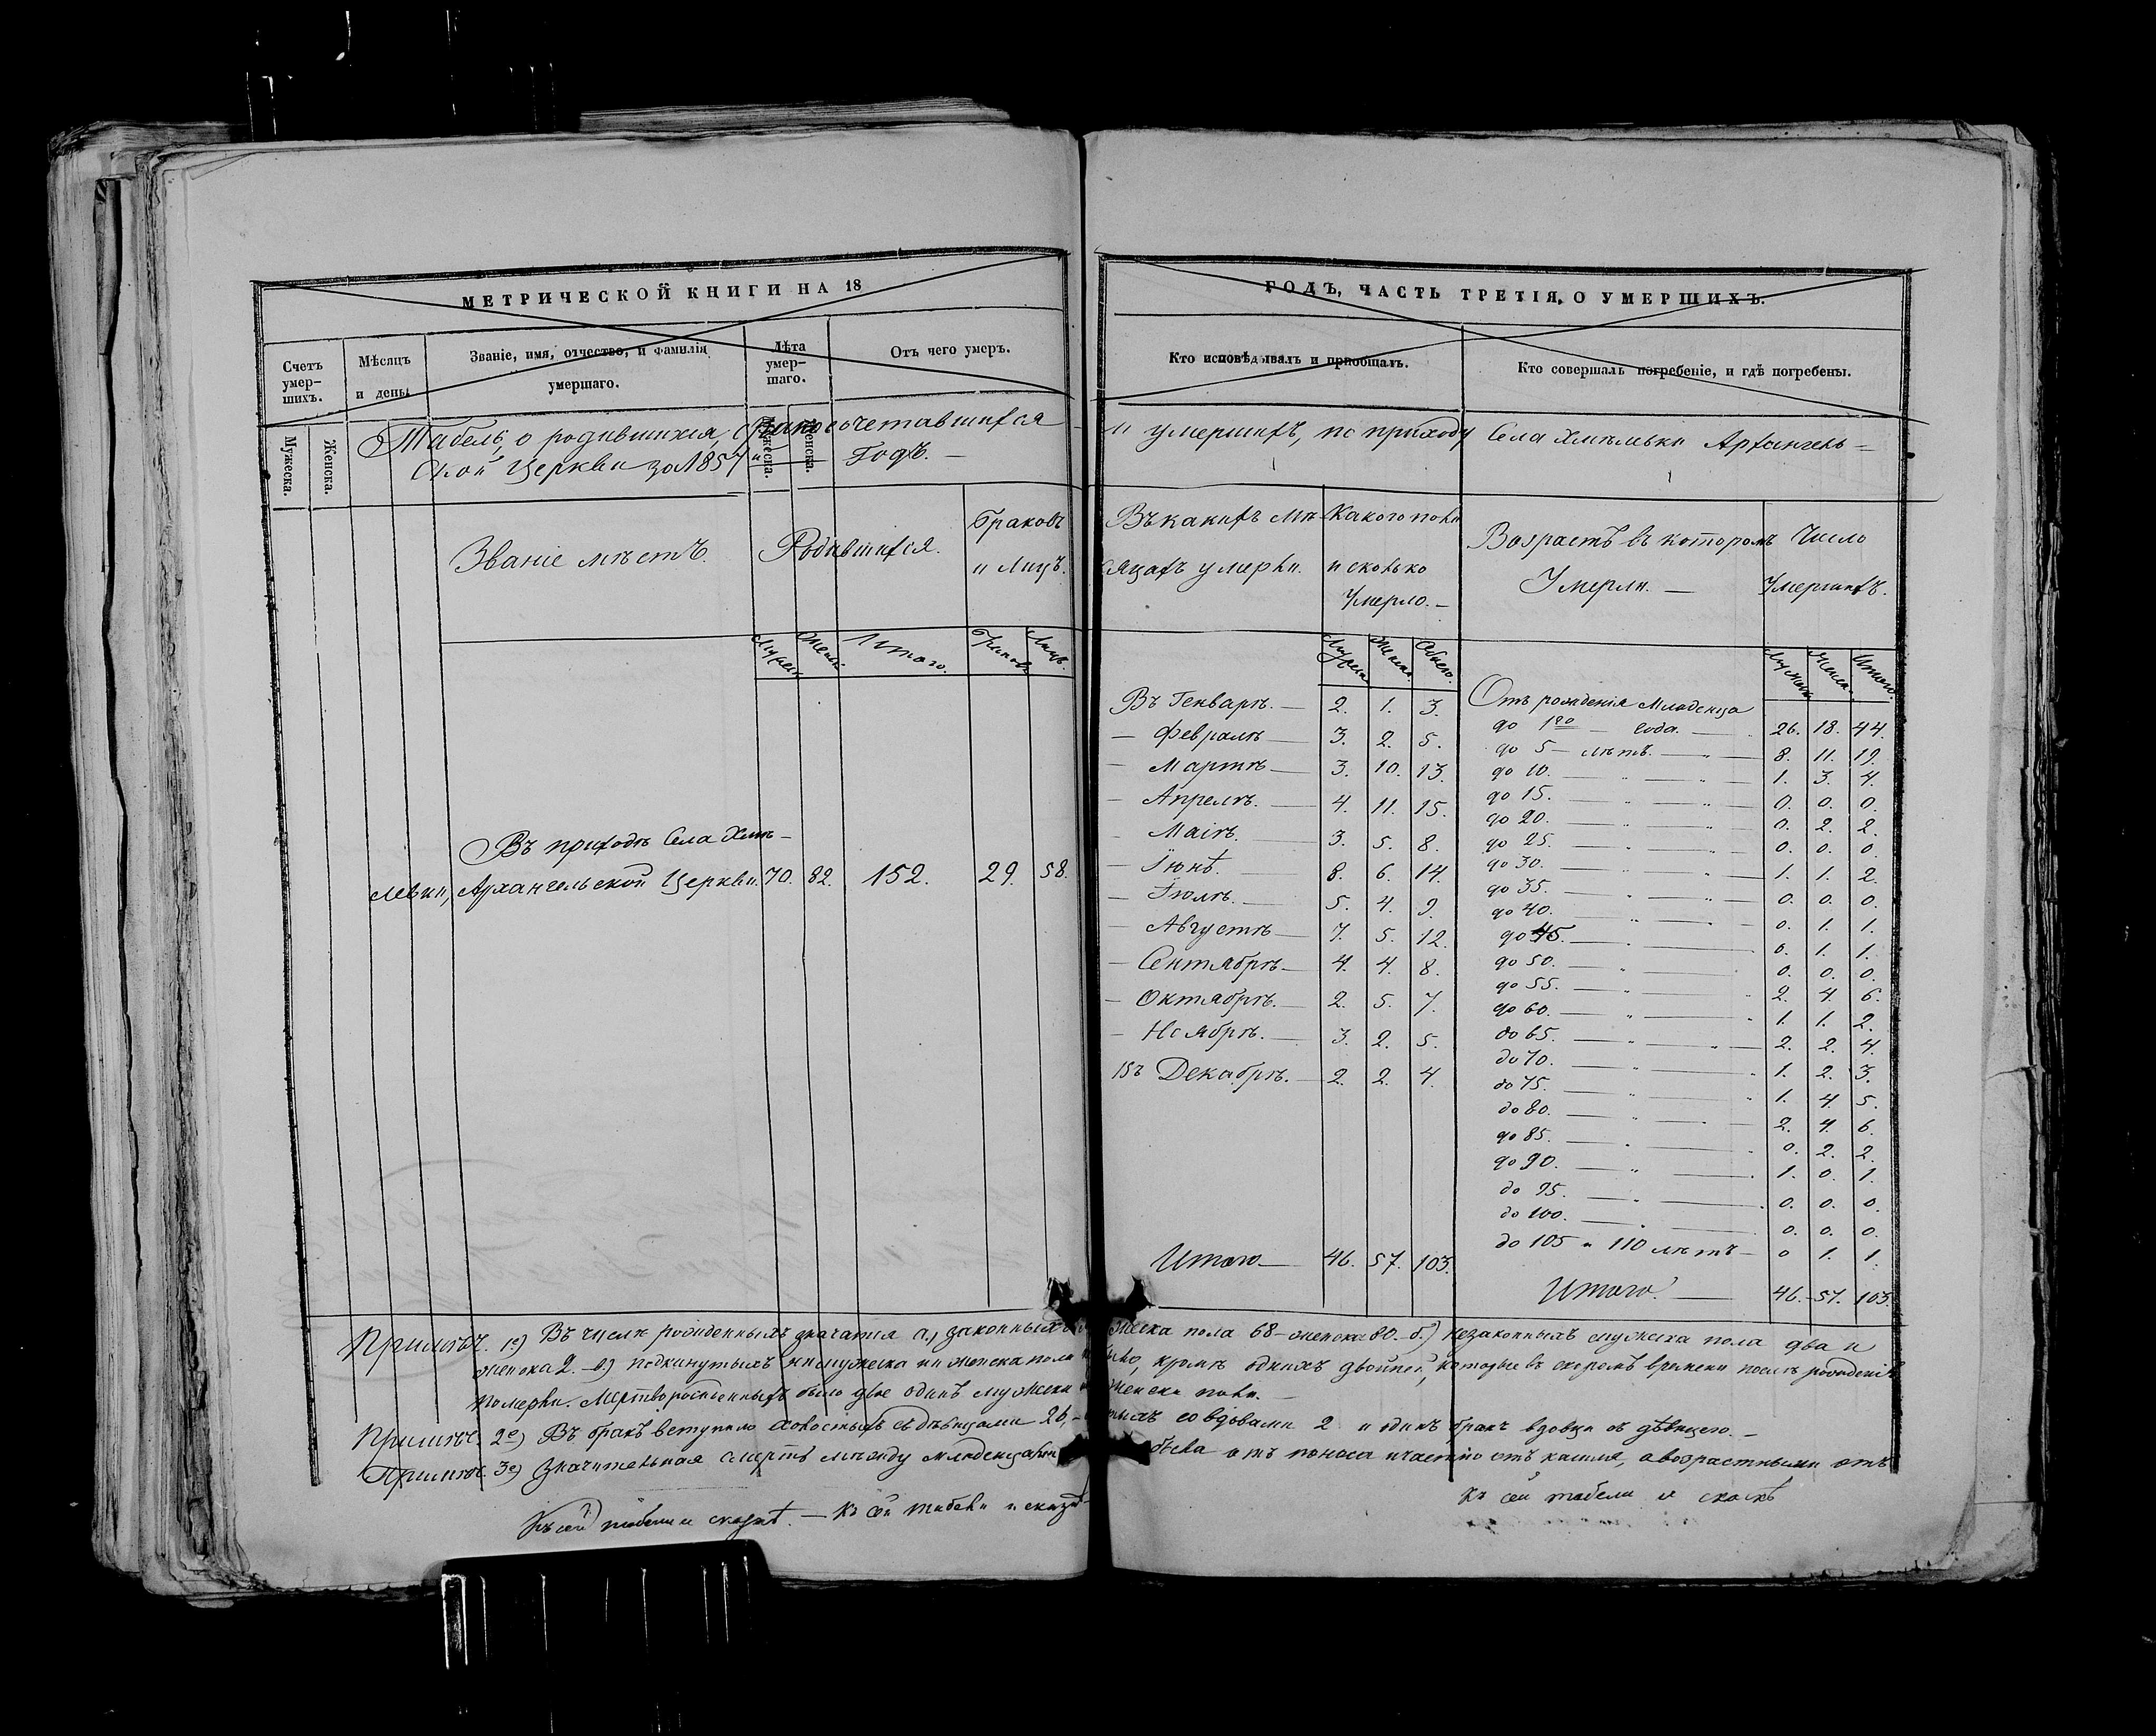 МЕТРИЧЕСКОЙ КНИГИ НА 18
Счетъ умер-шихъ.
Мѣсяцъ и день.
Званіе, имя, отчество, и фамилія умершаго.
Лѣта умер-шаго.
Отъ чего умеръ.
Мужеска.
Женска.
Мужеска.
Женска.
Табель, о родившихся, бракосочетавшихся
ской Церкви за 1857 й Годъ. —
Званіе мѣстъ.
Родившихся.
Браковъ и Лицъ.
Мужеск.
Женск.
Итого.
Браковъ
Лицъ.
Въ приходѣ Села Хмѣ-
левки, Архангельской Церкви. 70. 82. 152. 29. 58.
ГОДЪ, ЧАСТЬ ТРЕТІЯ, О УМЕРШИХЪ.
Кто исповѣдывалъ и пріобщалъ.
Кто совершалъ погребеніе, и гдѣ погребены.
и умершихъ, по приходу Села Хмѣльвки Архангель=
Въ какихъ мѣ-сяцахъ умерли.
Какого пола и сколько Умерло. —
Возрастъ въ которомъ Умерли. —
Число Умершихъ.
Мужеска
Женска.
Обоего.
Мужска
Женска.
Итого.
Въ Генварѣ. — 2. 1. 3.
— Февралѣ — 3. 2. 5.
— Мартѣ — 3. 10. 13.
— Апрелѣ. — 4. 11. 15.
— Маіѣ. — 3. 5. 8.
— Іюнѣ. — 8. 6. 14.
— Іюлѣ. — 5. 4. 9.
— Августѣ — 7. 5. 12.
— Сентябрѣ — 4. 4. 8.
— Октябрѣ. — 2. 5. 7.
— Ноябрѣ. — 3. 2. 5.
Въ Декабрѣ. — 2. 2. 4.
Итого — 46. 57. 103.
Отъ рожденія Младенца
до 1го — года. — 26. 18. 44.
до 5 — лѣтъ. — 8. 11. 19.
до 10. — 1. 3. 4.
до 15. — 0. 0. 0.
до 20. — 0. 2. 2.
до 25. — 0. 0. 0.
до 30. — 1. 1. 2.
до 35. — 0. 0. 0.
до 40. — 0. 1. 1.
до 45. — 0. 1. 1.
до 50. — 0. 0. 0.
до 55. — 2. 4. 6.
до 60. — 1. 1. 2.
до 65. — 2. 2. 4.
до 70. — 1. 2. 3.
до 75. — 1. 4. 5.
до 80. — 2. 4. 6.
до 85. — 0. 2. 2.
до 90. — 1. 0. 1.
до 95. — 0. 0. 0.
до 100. — 0. 0. 0.
до 105 и 110 лѣтъ — 0 1. 1.
Итого. — 46. 57. 103.
Примѣч. 1е) Въ числѣ рожденныхъ значатся а.) законныхъ жеска пола 68 — женска 80. — б.) незаконныхъ мужеска пола два и
женска 2. — в) подкинутыхъ ни мужеска ни женска пола было, кромѣ однихъ двойней, которые въ скоромъ времени послѣ рожденія
померли. Мертворожденныхъ было двое одинъ мужска женска пола. —
Примѣч. 2е) Въ бракъ вступило холостыхъ съ дѣвицами 26, — тыхъ со вдовами 2 и одинъ бракъ вдовца съ дѣвицею. —
Примѣч. 3е) Значительная смерть между младенцами была отъ поноса и частію отъ кашля, а возрастными отъ
Къ сей табели и сказкѣ. — Къ сей табели и сказкѣ
Къ сей табели и сказкѣ